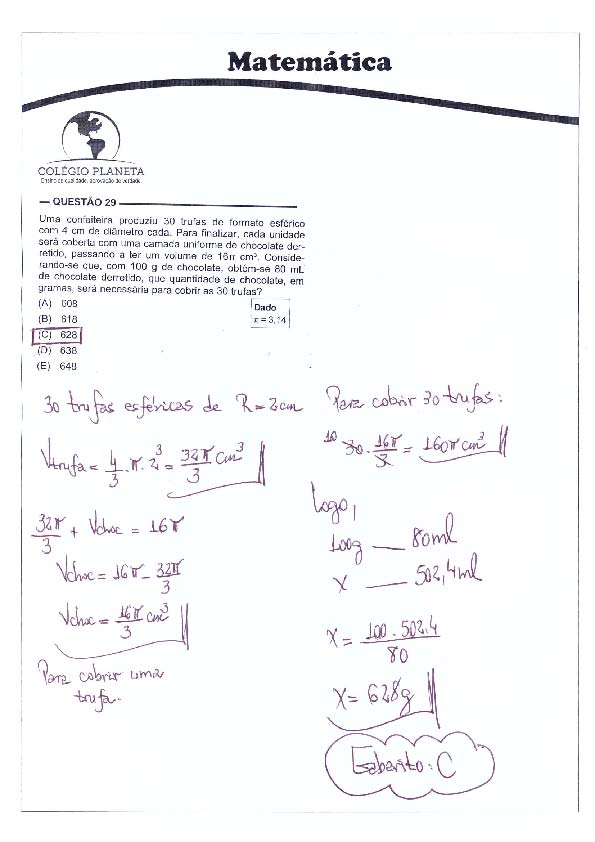 Matemática
COLÉGIO PLANETA
Ensino de qualidade, aprovação de verdade.
QUESTÃO 29
Uma confeiteira produziu 30 trufas de formato esférico
com 4 cm de diâmetro cada. Para finalizar, cada unidade
será coberta com uma camada uniforme de chocolate der-
retido, passando a ter um volume de 16π cm³. Conside-
rando-se que, com 100 g de chocolate, obtém-se 80 mL
de chocolate derretido, que quantidade de chocolate, em
gramas, será necessária para cobrir as 30 trufas?
(A) 608
(B) 618
(C) 628
(D) 638
(E) 648
Dado
π = 3,14
30 trufas esféricas de R = 2cm
Vtrufa = 4/3 . π . 2³ = 32π/3 cm³
32π/3 + Vchoc = 16π
Vchoc = 16π - 32π/3
Vchoc = 16π/3 cm³
Para cobrir uma
trufa.
Para cobrir 30 trufas:
10 30 . 16π/3 = 160π cm³
Logo,
100g — 80ml
X — 502,4ml
X = 100 . 502,4/80
X = 628g
Gabarito: C